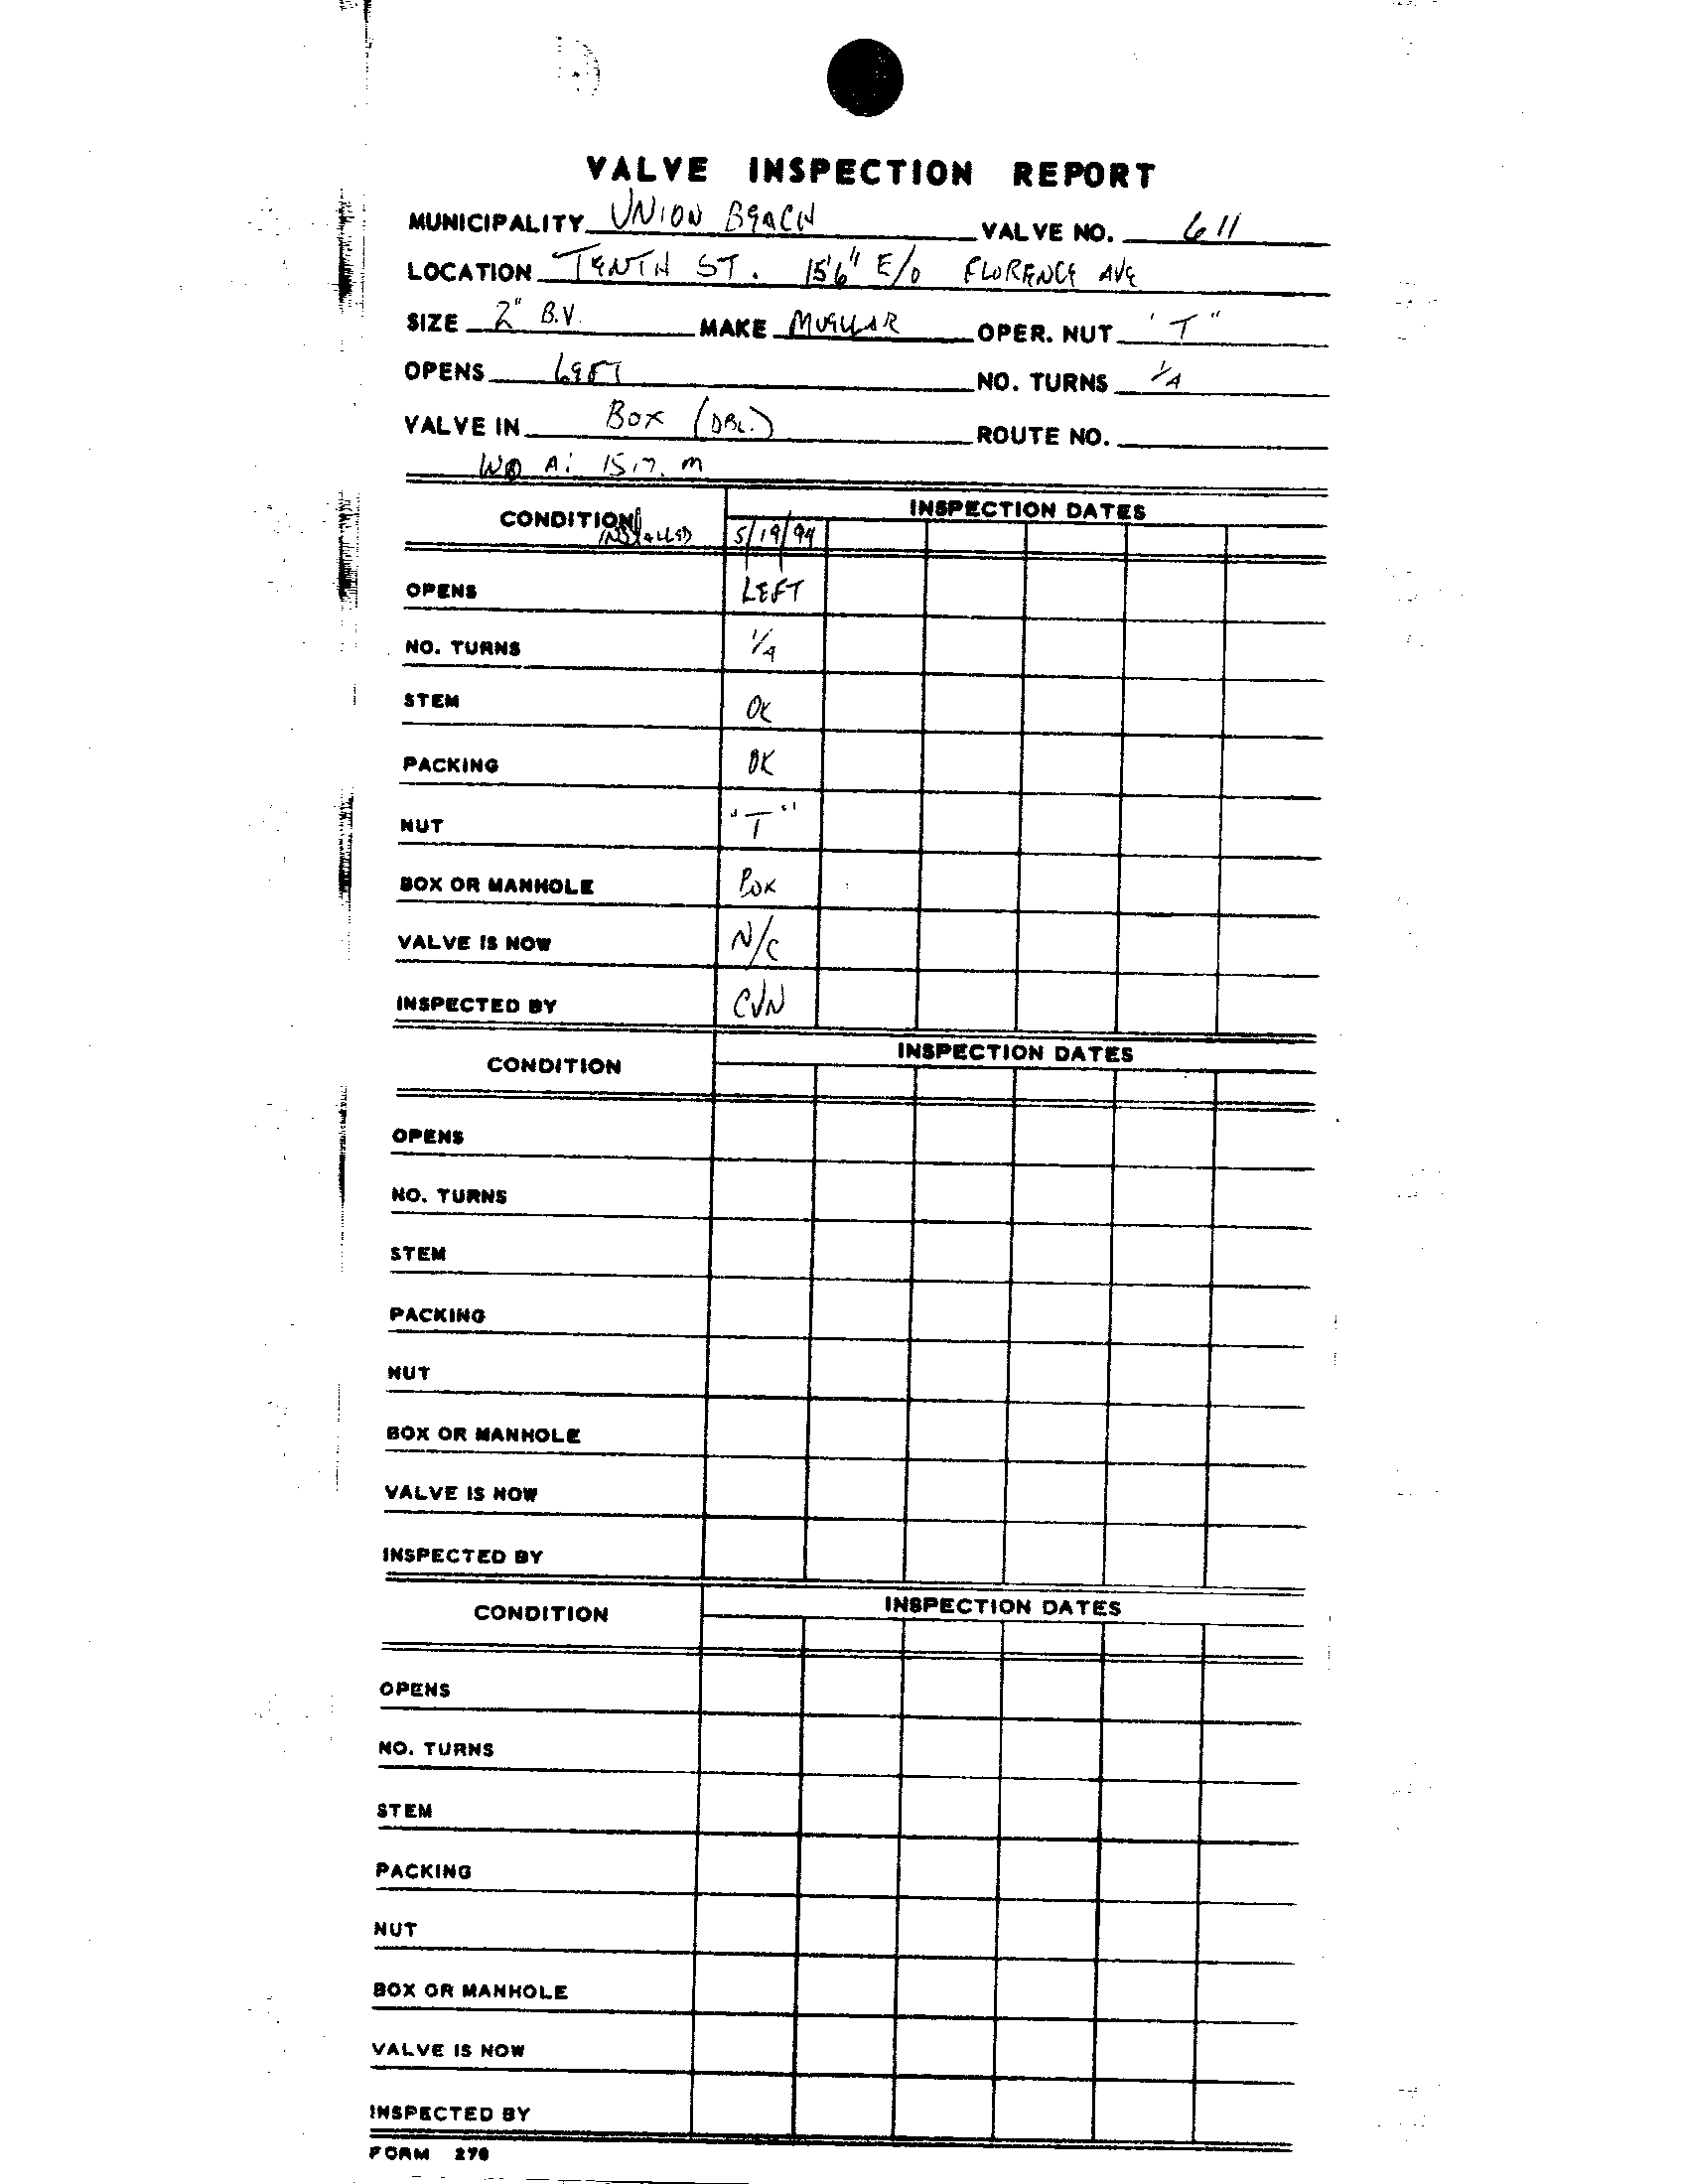 VALVE INSPECTION REPORT
MUNICIPALITY UNION BEACH VALVE NO. 611
LOCATION TENTH ST. 15'6" E/O FLORENCE AVE
SIZE 2" B.V. MAKE MUELLAR OPER. NUT "T"
OPENS LEFT NO. TURNS 1/4
VALVE IN BOX (DBL.) ROUTE NO.
CONDITION INSTALLED INSPECTION DATES
5/19/94
OPENS LEFT
NO. TURNS 1/4
STEM OK
PACKING OK
NUT "T"
BOX OR MANHOLE BOX
VALVE IS NOW N/C
INSPECTED BY CVN
CONDITION INSPECTION DATES
OPENS
NO. TURNS
STEM
PACKING
NUT
BOX OR MANHOLE
VALVE IS NOW
INSPECTED BY
CONDITION INSPECTION DATES
OPENS
NO. TURNS
STEM
PACKING
NUT
BOX OR MANHOLE
VALVE IS NOW
INSPECTED BY
FORM 276